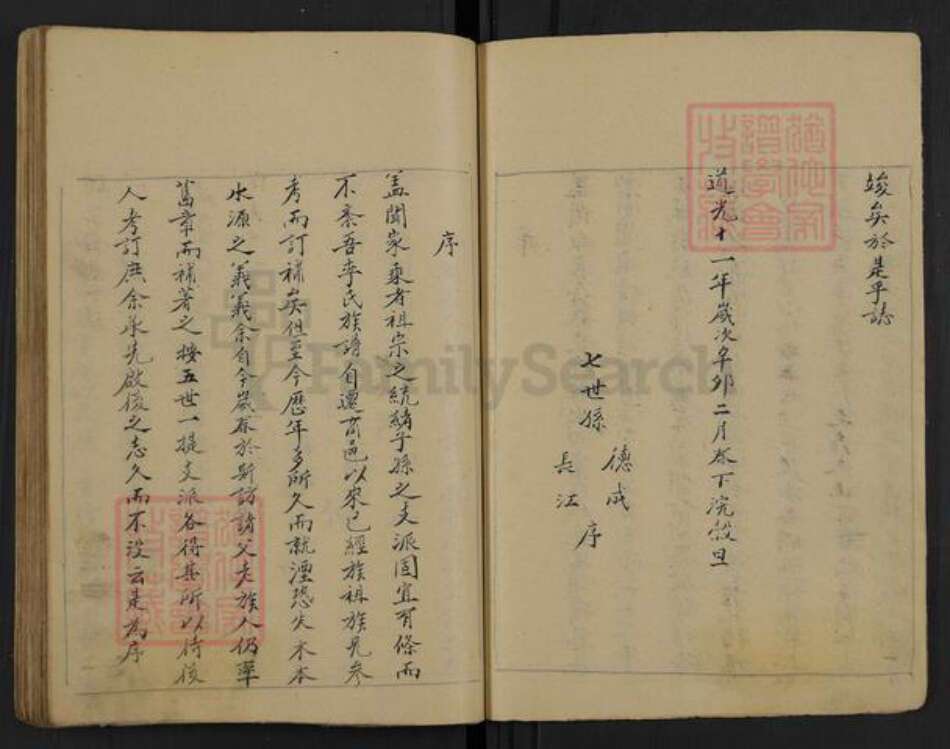 竣矣於是乎誌
道光十一年歲次辛卯二月春下浣穀旦
七世孫
德成
長江
序
序
蓋聞家乘者祖宗之統緒子孫之支派固宜有條而
不紊吾李氏族譜自遷商邑以來已經族祖族兄參
考而訂補矣但至今歷年多所久而就湮恐失木本
水源之義義余自今歲春於斯訪諸父老族人仍率
舊章而補著之按五世一提支派各得其所以待後
人考訂庶余承先啟後之志久而不沒云是為序
FamilySearch